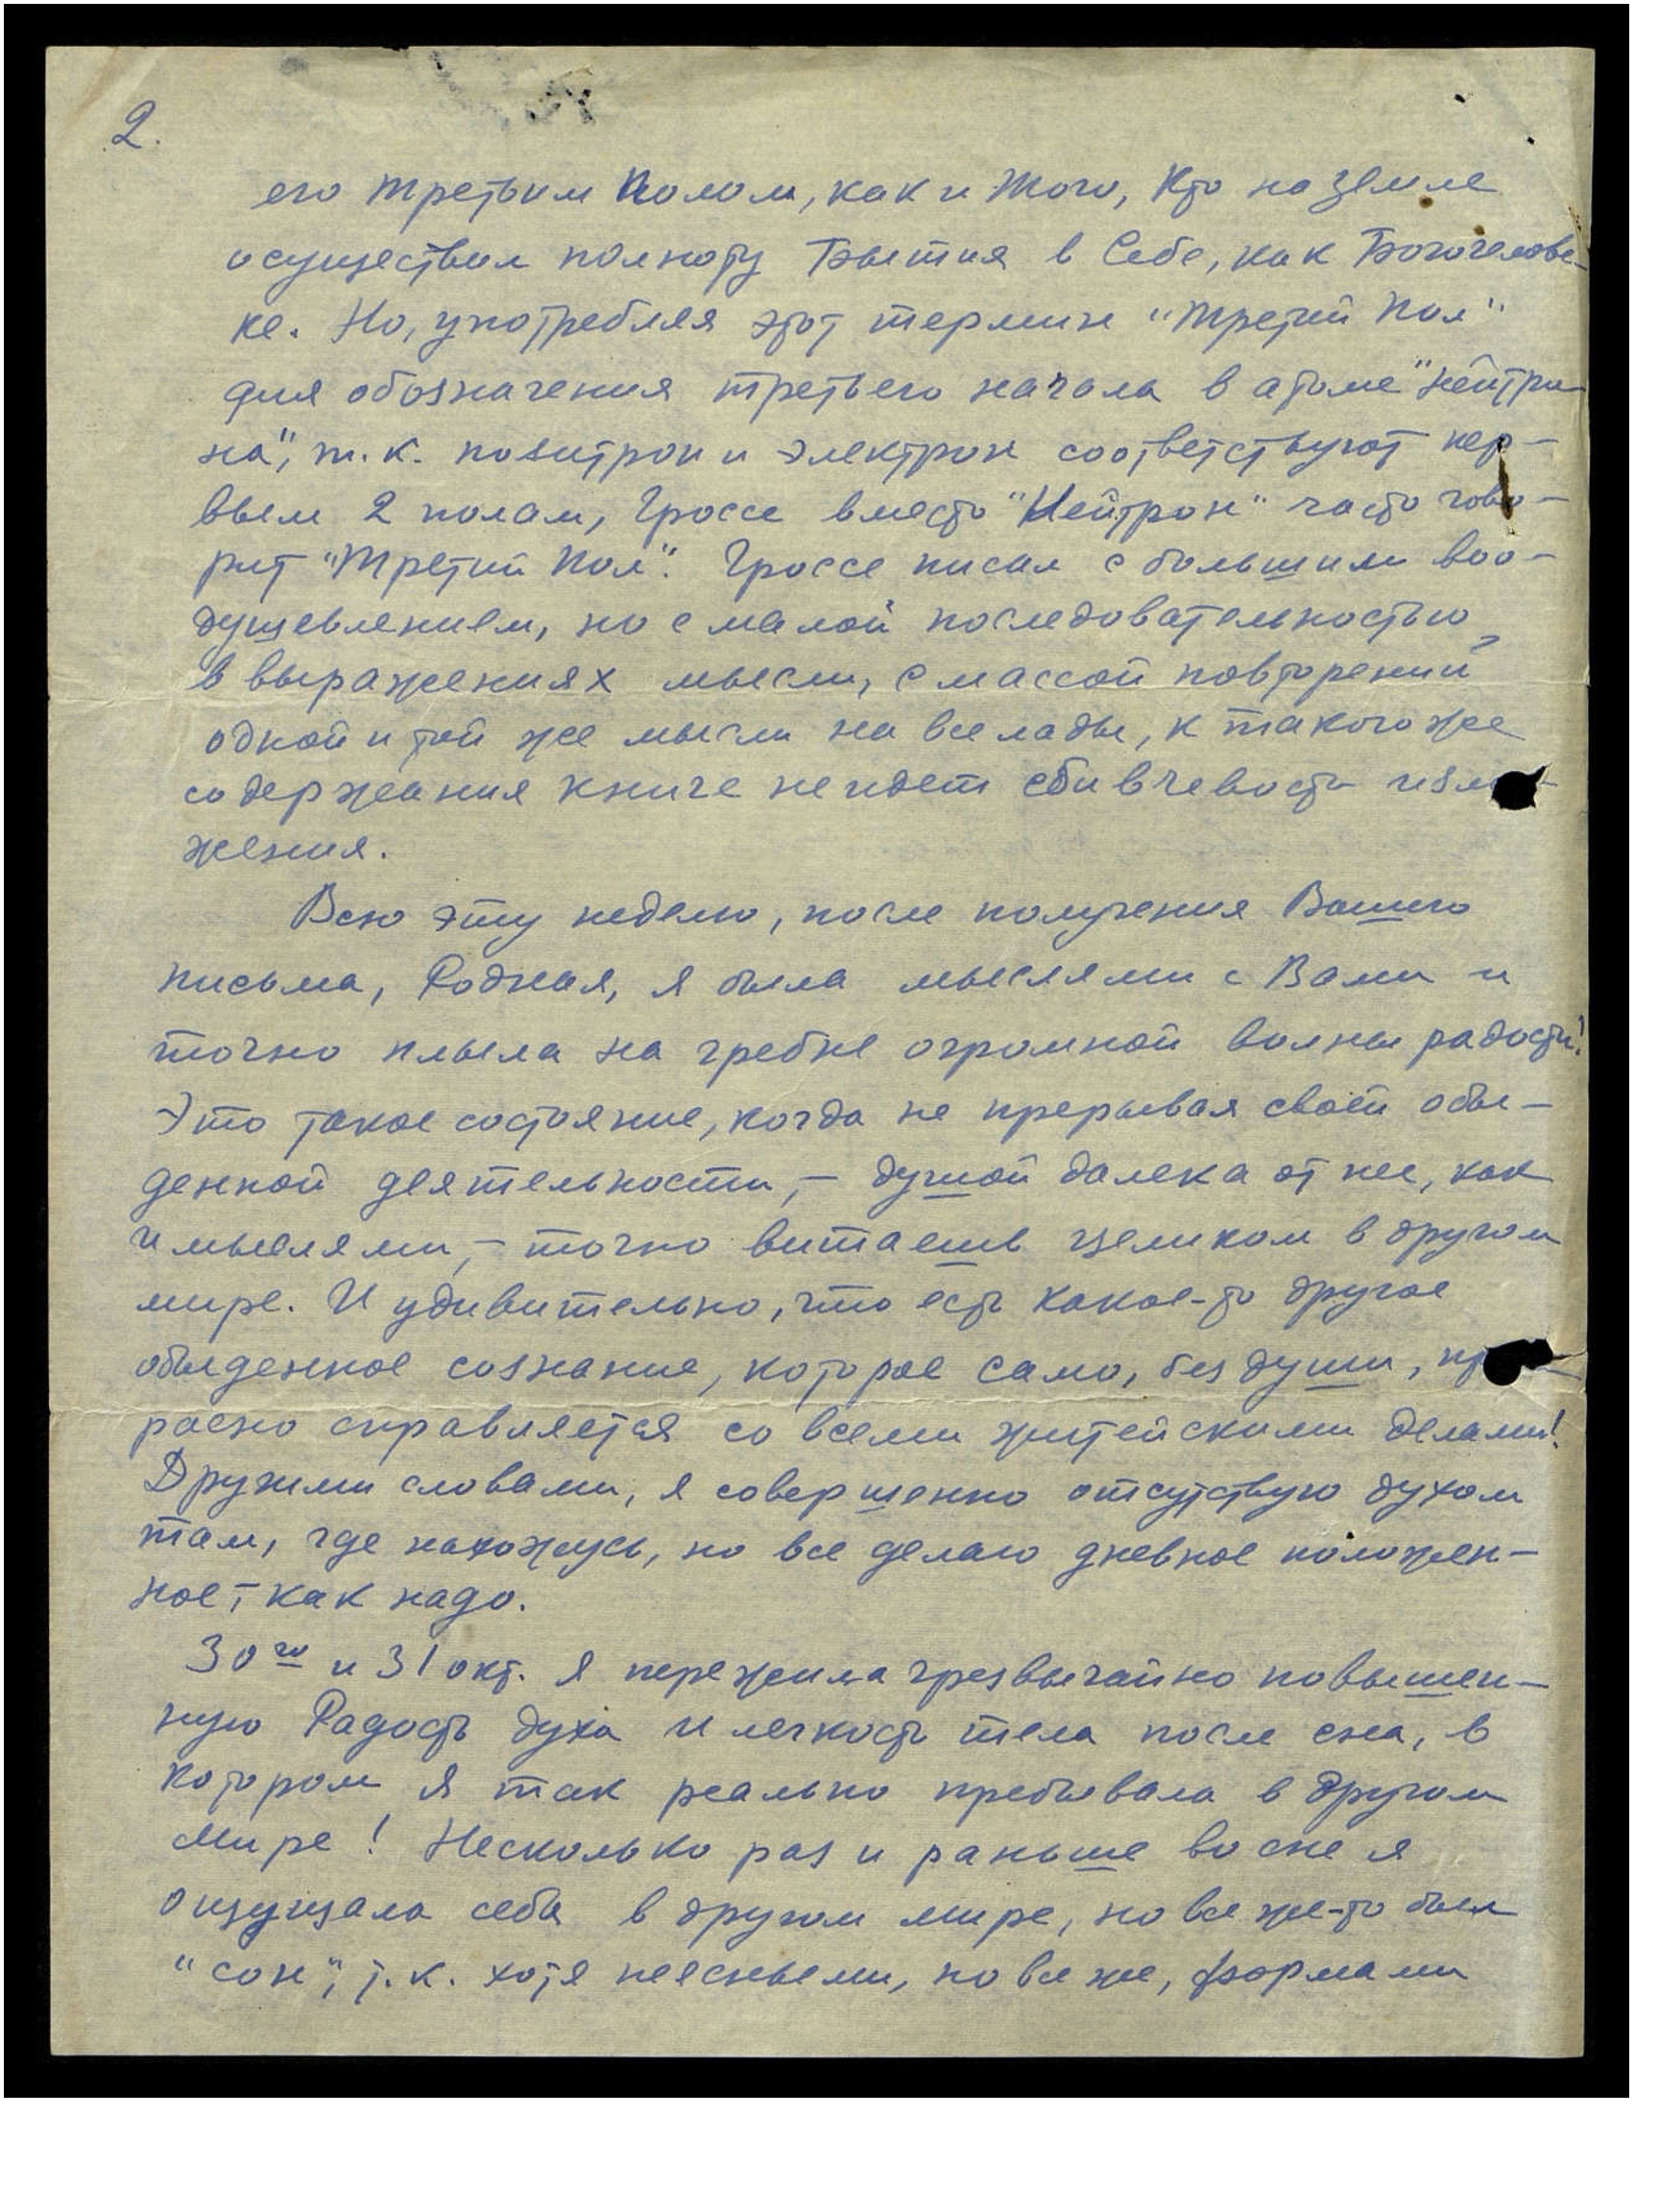 2.
его третьим Полом, как и Того, Кто на Земле
осуществил полноту Бытия в Себе, как Богочелове-
ке. Но, употребляя этот термин "третий Пол"
для обозначения третьего начала в атоме "Нейтро
на", т.к. позитрон и электрон соответствуют пер-
вым 2 полам, Гроссе вместо "Нейтрон" часто гово-
рит "Третий Пол". Гроссе писал с большим воо-
душевлением, но с малой последовательностью
в выражениях мысли, с массой повторений
одной и той же мысли на все лады, к такого же
содержания книге не идет сбивчевость изло-
жения.
Всю эту неделю, после получения Вашего
письма, Родная, я была мыслями с Вами и
точно плыла на гребне огромной волны радости!
Это такое состояние, когда не прерывая своей обы-
денной деятельности, - душой далека от нее, как
и мыслями, - точно витаешь целиком в другом
мире. И удивительно, что есть какое-то другое
обыденное сознание, которое само, без души,
расно справляется со всеми житейскими делами!
Другими словами, я совершенно отсутствую духом
там, где нахожусь, но все делаю дневное положен-
ное, - как надо.
30го и 31 окт. я пережила чрезвычайно повышен-
ную Радость духа и легкость тела после сна, в
котором я так реально пребывала в другом
мире! Несколько раз и раньше во сне я
ощущала себя в другом мире, но все же-то был
"сон", т.к. хотя неясными, но все же, формами